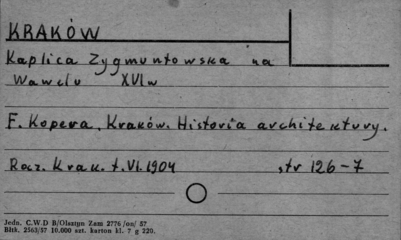 KRAKÓW
Kaplica Zygmuntowska na
Wawelu XVI w
F. Kopera, Kraków. Historia architektury.
Rocz. Krak. t. VI. 1904 str 126-7
Jedn. C.W.D B/Olsztyn Zam 2776 /on/ 57
Błtk. 2563/57 10.000 szt. karton kl. 7 g 220.